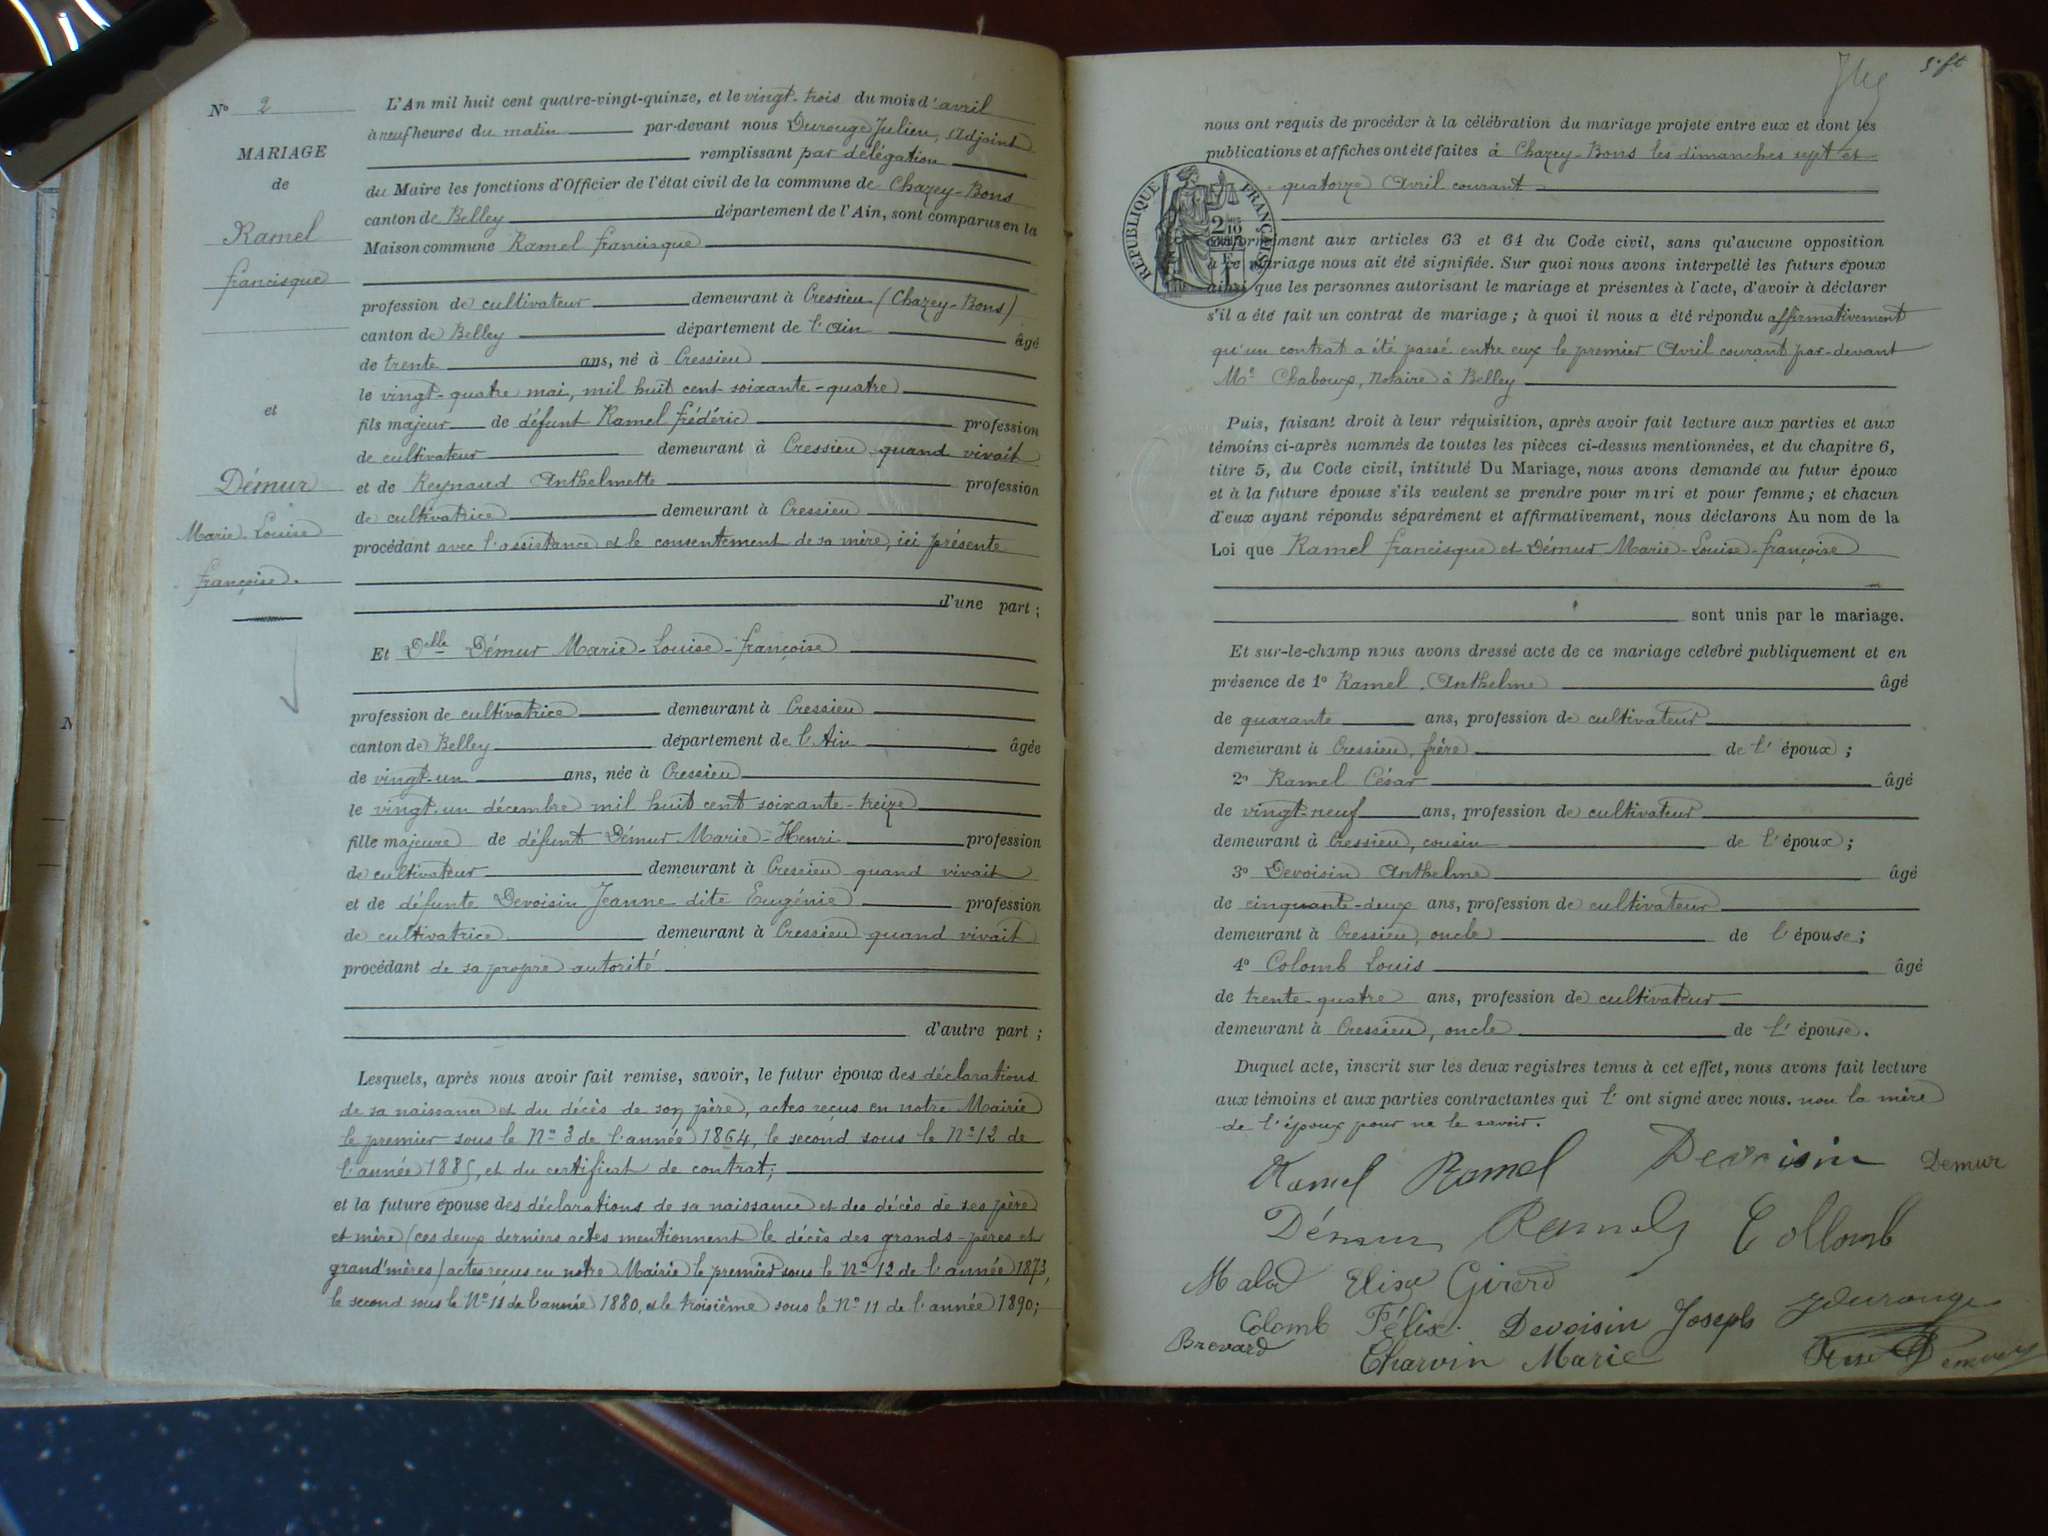 N° 2
MARIAGE
de
Ramel
francisque
et
Démur
Marie-Louise
françoise.
L'An mil huit cent quatre-vingt-quinze, et le vingt-trois du mois d'avril
à neuf heures du matin par-devant nous Durouge Julien, Adjoint
remplissant par délégation
du Maire les fonctions d'Officier de l'état civil de la commune de Chazey-Bons
canton de Belley département de l'Ain, sont comparus en la
Maison commune Ramel francisque
profession de cultivateur demeurant à Cressieu (Chazey-Bons)
canton de Belley département de l'Ain âgé
de trente ans, né à Cressieu
le vingt-quatre mai, mil huit cent soixante-quatre
fils majeur de défunt Ramel frédéric profession
de cultivateur demeurant à Cressieu quand vivait
et de Reynaud Anthelmette profession
de cultivatrice demeurant à Cressieu
procédant avec l'assistance et le consentement de sa mère, ici présente
d'une part;
Et Delle Démur Marie-Louise-françoise
profession de cultivatrice demeurant à Cressieu
canton de Belley département de l'Ain âgée
de vingt-un ans, née à Cressieu
le vingt-un décembre mil huit cent soixante-treize
fille majeure de défunt Démur Marie-Henri profession
de cultivateur demeurant à Cressieu quand vivait
et de défunte Devoisin Jeanne dite Eugénie profession
de cultivatrice demeurant à Cressieu quand vivait
procédant de sa propre autorité
d'autre part;
Lesquels, après nous avoir fait remise, savoir, le futur époux des déclarations
de sa naissance et du décès de son père, actes reçus en notre Mairie
le premier sous le N° 3 de l'année 1864, le second sous le N° 12 de
l'année 1885, et du certificat de contrat;
et la future épouse des déclarations de sa naissance et des décès de ses père
et mère (ces deux derniers actes mentionnent le décès des grands-pères et
grand'mères) actes reçus en notre Mairie le premier sous le N° 12 de l'année 1873,
le second sous le N° 11 de l'année 1880, et le troisième sous le N° 11 de l'année 1890;
nous ont requis de procéder à la célébration du mariage projeté entre eux et dont les
publications et affiches ont été faites à Chazey-Bons les dimanches sept et
quatorze Avril courant
RÉPUBLIQUE FRANÇAISE
conformément aux articles 63 et 64 du Code civil, sans qu'aucune opposition
à ce mariage nous ait été signifiée. Sur quoi nous avons interpellé les futurs époux
ainsi que les personnes autorisant le mariage et présentes à l'acte, d'avoir à déclarer
s'il a été fait un contrat de mariage; à quoi il nous a été répondu affirmativement
qu'un contrat a été passé entre eux le premier Avril courant par-devant
Me Chaboux, Notaire à Belley
Puis, faisant droit à leur réquisition, après avoir fait lecture aux parties et aux
témoins ci-après nommés de toutes les pièces ci-dessus mentionnées, et du chapitre 6,
titre 5, du Code civil, intitulé Du Mariage, nous avons demandé au futur époux
et à la future épouse s'ils veulent se prendre pour mari et pour femme; et chacun
d'eux ayant répondu séparément et affirmativement, nous déclarons Au nom de la
Loi que Ramel francisque et Démur Marie-Louise-françoise
sont unis par le mariage.
Et sur-le-champ nous avons dressé acte de ce mariage célébré publiquement et en
présence de 1° Ramel Anthelme âgé
de quarante ans, profession de cultivateur
demeurant à Cressieu, frère de l'époux;
2° Ramel César âgé
de vingt-neuf ans, profession de cultivateur
demeurant à Cressieu, cousin de l'époux;
3° Devoisin Anthelme âgé
de cinquante-deux ans, profession de cultivateur
demeurant à Cressieu, oncle de l'épouse;
4° Colomb Louis âgé
de trente-quatre ans, profession de cultivateur
demeurant à Cressieu, oncle de l'épouse.
Duquel acte, inscrit sur les deux registres tenus à cet effet, nous avons fait lecture
aux témoins et aux parties contractantes qui l'ont signé avec nous. non la mère
de l'époux pour ne le savoir.
Ramel Ramel Devoisin Demur
Démur Ramel Collomb
Elisa Girard
Colomb Félix. Devoisin Joseph JDurouge
Brevard Charvin Marie